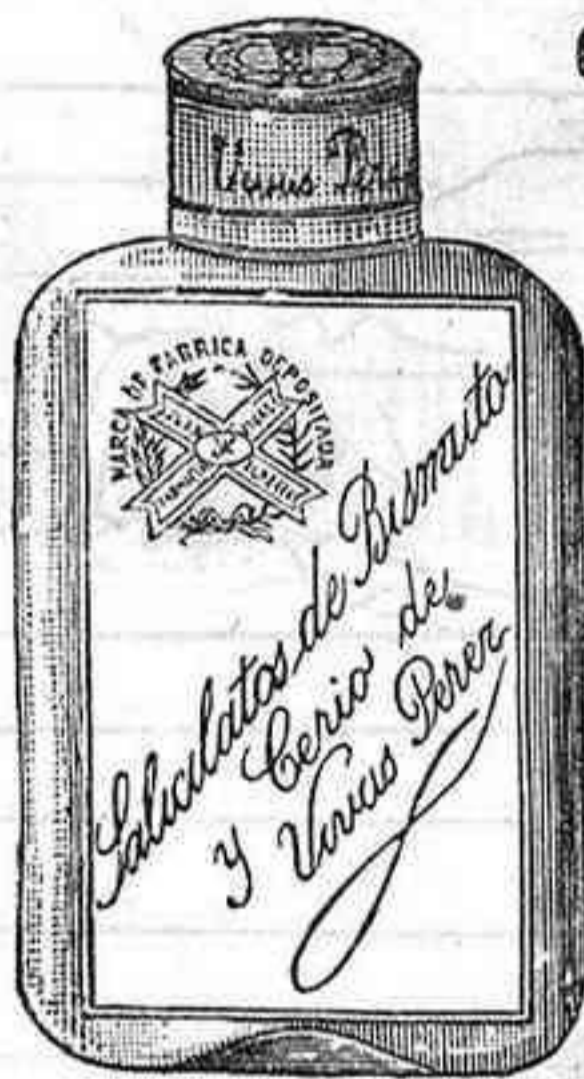 Vivas Perez
MARCA DE FABRICA DEPOSITADA
Salicilatos de Bismuto
y Cerio de
Vivas Perez